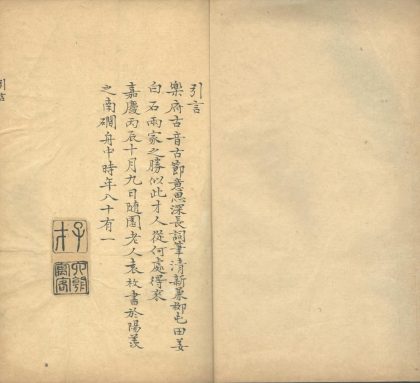 引言
樂府古音古節意思深長詞筆清新兼柳屯田姜
白石兩家之勝似此才人從何處得來
嘉慶丙辰十月九日隨園老人袁枚書於陽羨
之南磵舟中時年八十有一
子才
引言